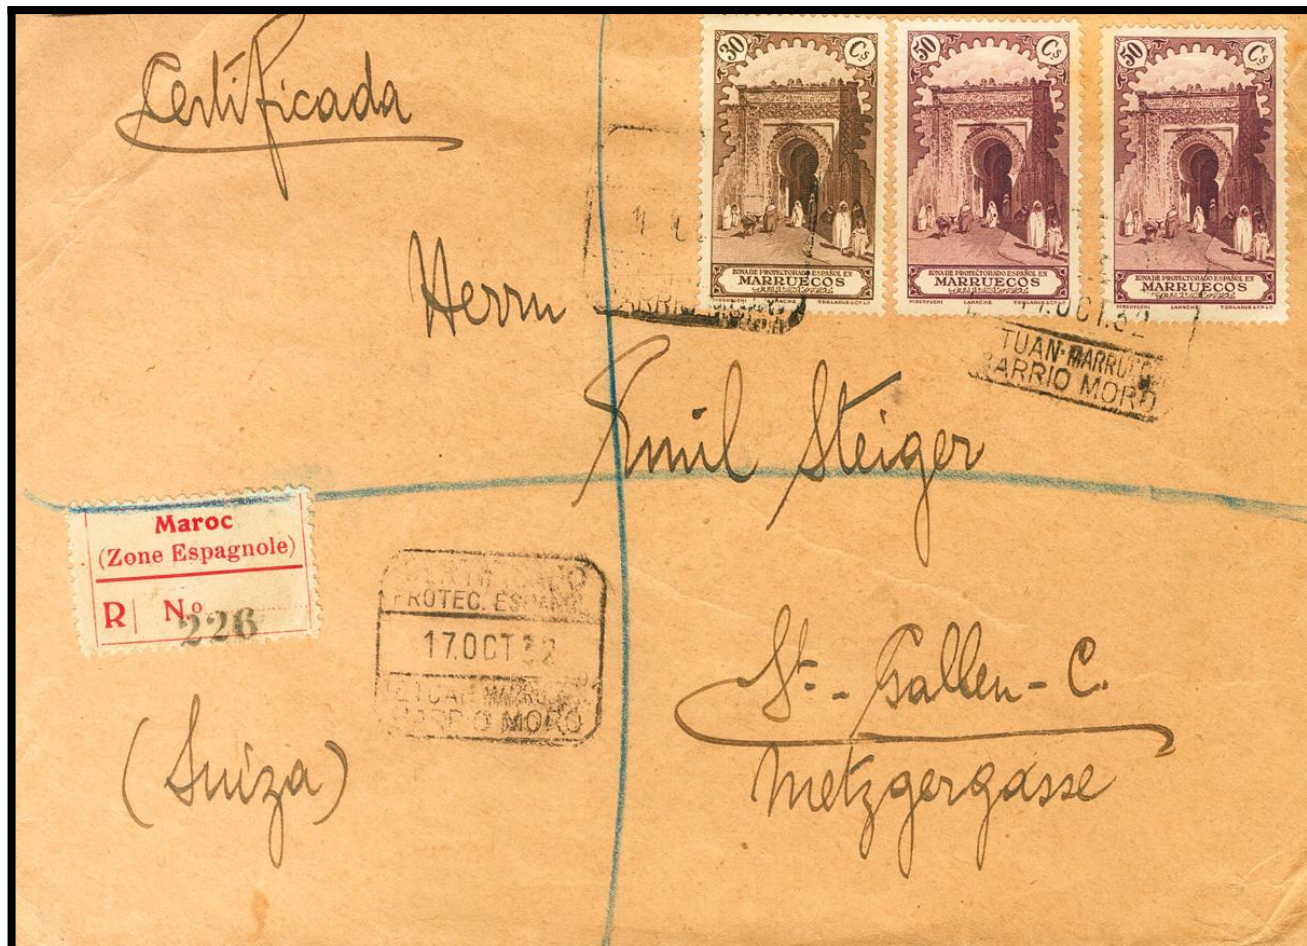 Certificada
30 Cs
ZONA DE PROTECTORADO ESPAÑOL EN
MARRUECOS
50 Cs
ZONA DE PROTECTORADO ESPAÑOL EN
MARRUECOS
50 Cs
ZONA DE PROTECTORADO ESPAÑOL EN
MARRUECOS
Herrn
BARRIO
17.OCT.32
TUAN-MARRUEC
BARRIO MORO
Emil Steiger
Maroc
(Zone Espagnole)
R No
226
CERTIFICADO
PROTEC. ESPAÑOL
17.OCT 32
TETUAN-MARRUECOS
BARRIO MORO
St. - Gallen - C.
(Suiza)
Metzgergasse